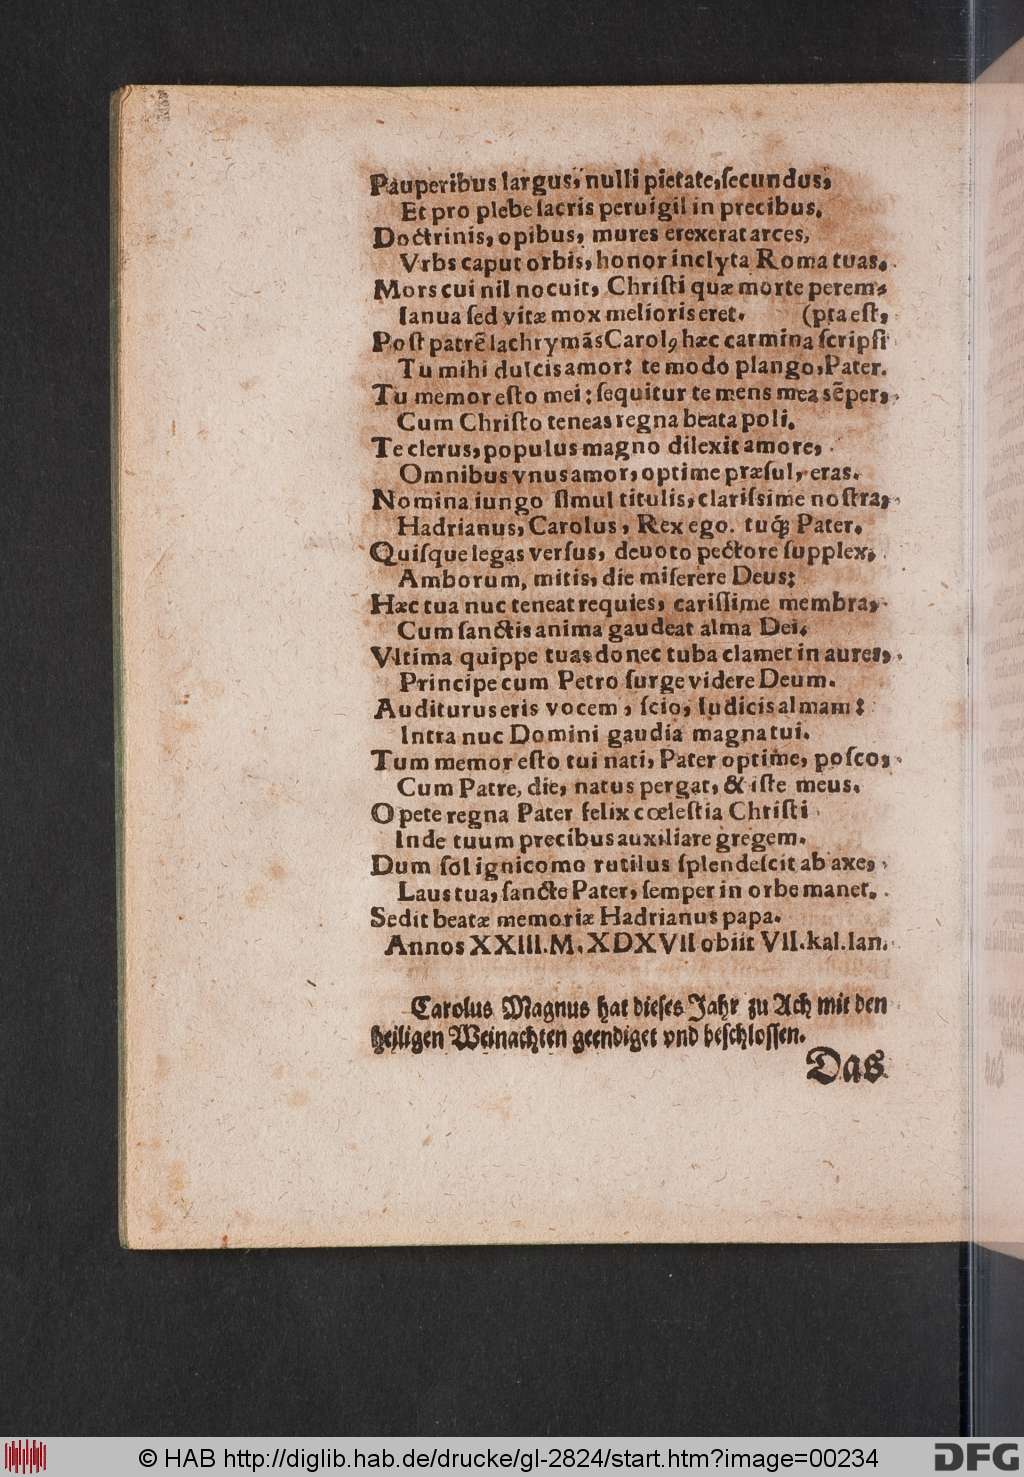 Pauperibus largus, nulli pietate, ſecundus,
Et pro plebe ſacris peruigil in precibus.
Doctrinis, opibus, mures erexerat arces,
Vrbs caput orbis, honor inclyta Roma tuas.
Mors cui nil nocuit, Chriſti quæ morte perem-
Ianua ſed vitæ mox melioris eret. (pta eſt,
Poſt patrē lachrymās Carolꝰ hæc carmina ſcripſi
Tu mihi dulcis amor: te modo plango, Pater.
Tu memor eſto mei: ſequitur te mens mea sēper,
Cum Chriſto teneas regna beata poli.
Te clerus, populus magno dilexit amore,
Omnibus vnus amor, optime præſul, eras.
Nomina iungo ſimul titulis, clariſsime noſtra,
Hadrianus, Carolus, Rex ego. tuq́; Pater.
Quiſque legas verſus, deuoto pectore ſupplex,
Amborum, mitis, die miſerere Deus:
Hæc tua nuc teneat requies, cariſſime membra,
Cum ſanctis anima gaudeat alma Dei.
Vltima quippe tuas donec tuba clamet in aures,
Principe cum Petro ſurge videre Deum.
Auditurus eris vocem, ſcio, Iudicis almam:
Intra nuc Domini gaudia magna tui.
Tum memor eſto tui nati, Pater optime, poſco,
Cum Patre, die, natus pergat, & iſte meus.
O pete regna Pater felix cœleſtia Chriſti
Inde tuum precibus auxiliare gregem.
Dum ſol ignicomo rutilus ſplendeſcit ab axe,
Laus tua, ſancte Pater, ſemper in orbe manet.
Sedit beatæ memoriæ Hadrianus papa.
Annos XXIII. M. XDXVII obiit VII. kal. Ian.
Carolus Magnus hat dieſes Jahr zu Ach mit den
heiligen Weinachten geendiget vnd beſchloſſen.
Das
© HAB http://diglib.hab.de/drucke/gl-2824/start.htm?image=00234
DFG